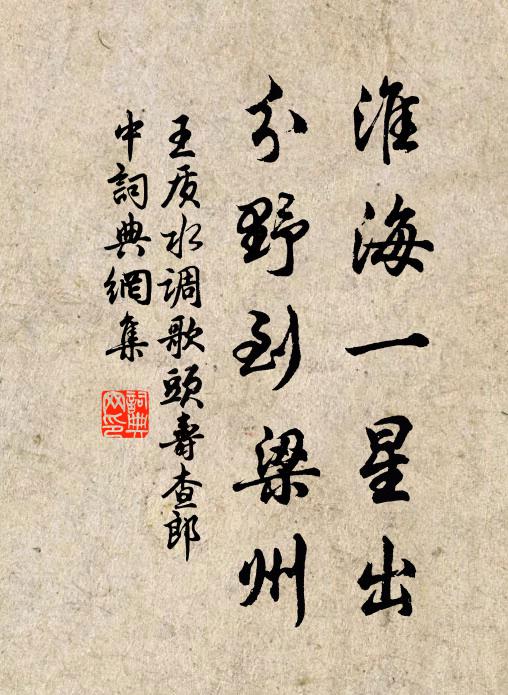 淮海一星出
分野到梁州
王质水调歌頭寿查郎
中詞典網集
詞典
网印